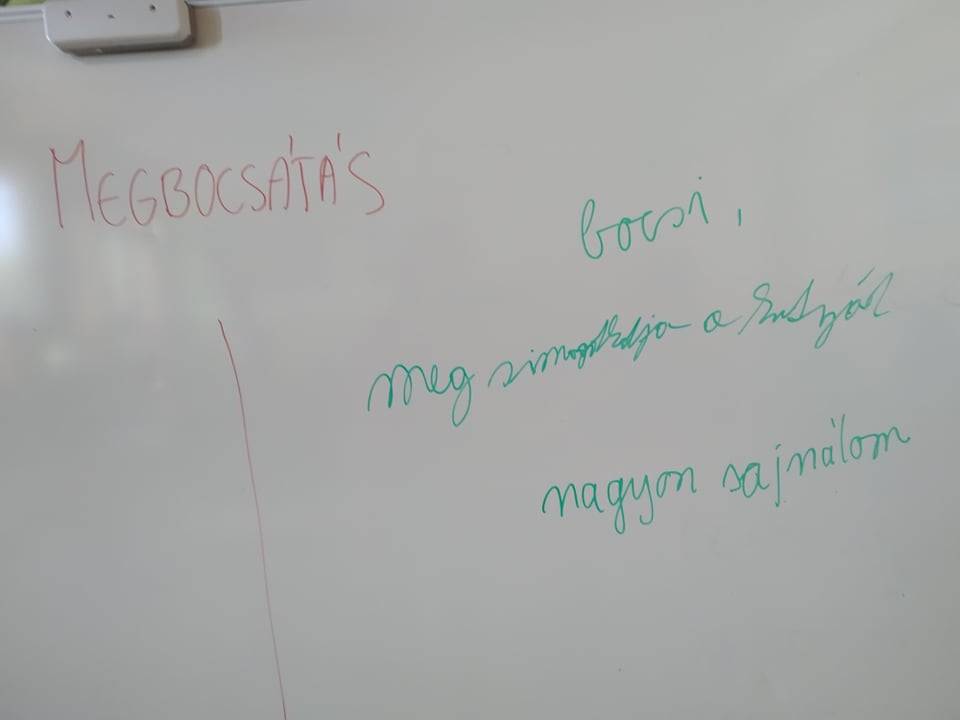 MEGBOCSÁTÁS
bocsi,
meg simogatja a kutyát
nagyon sajnálom